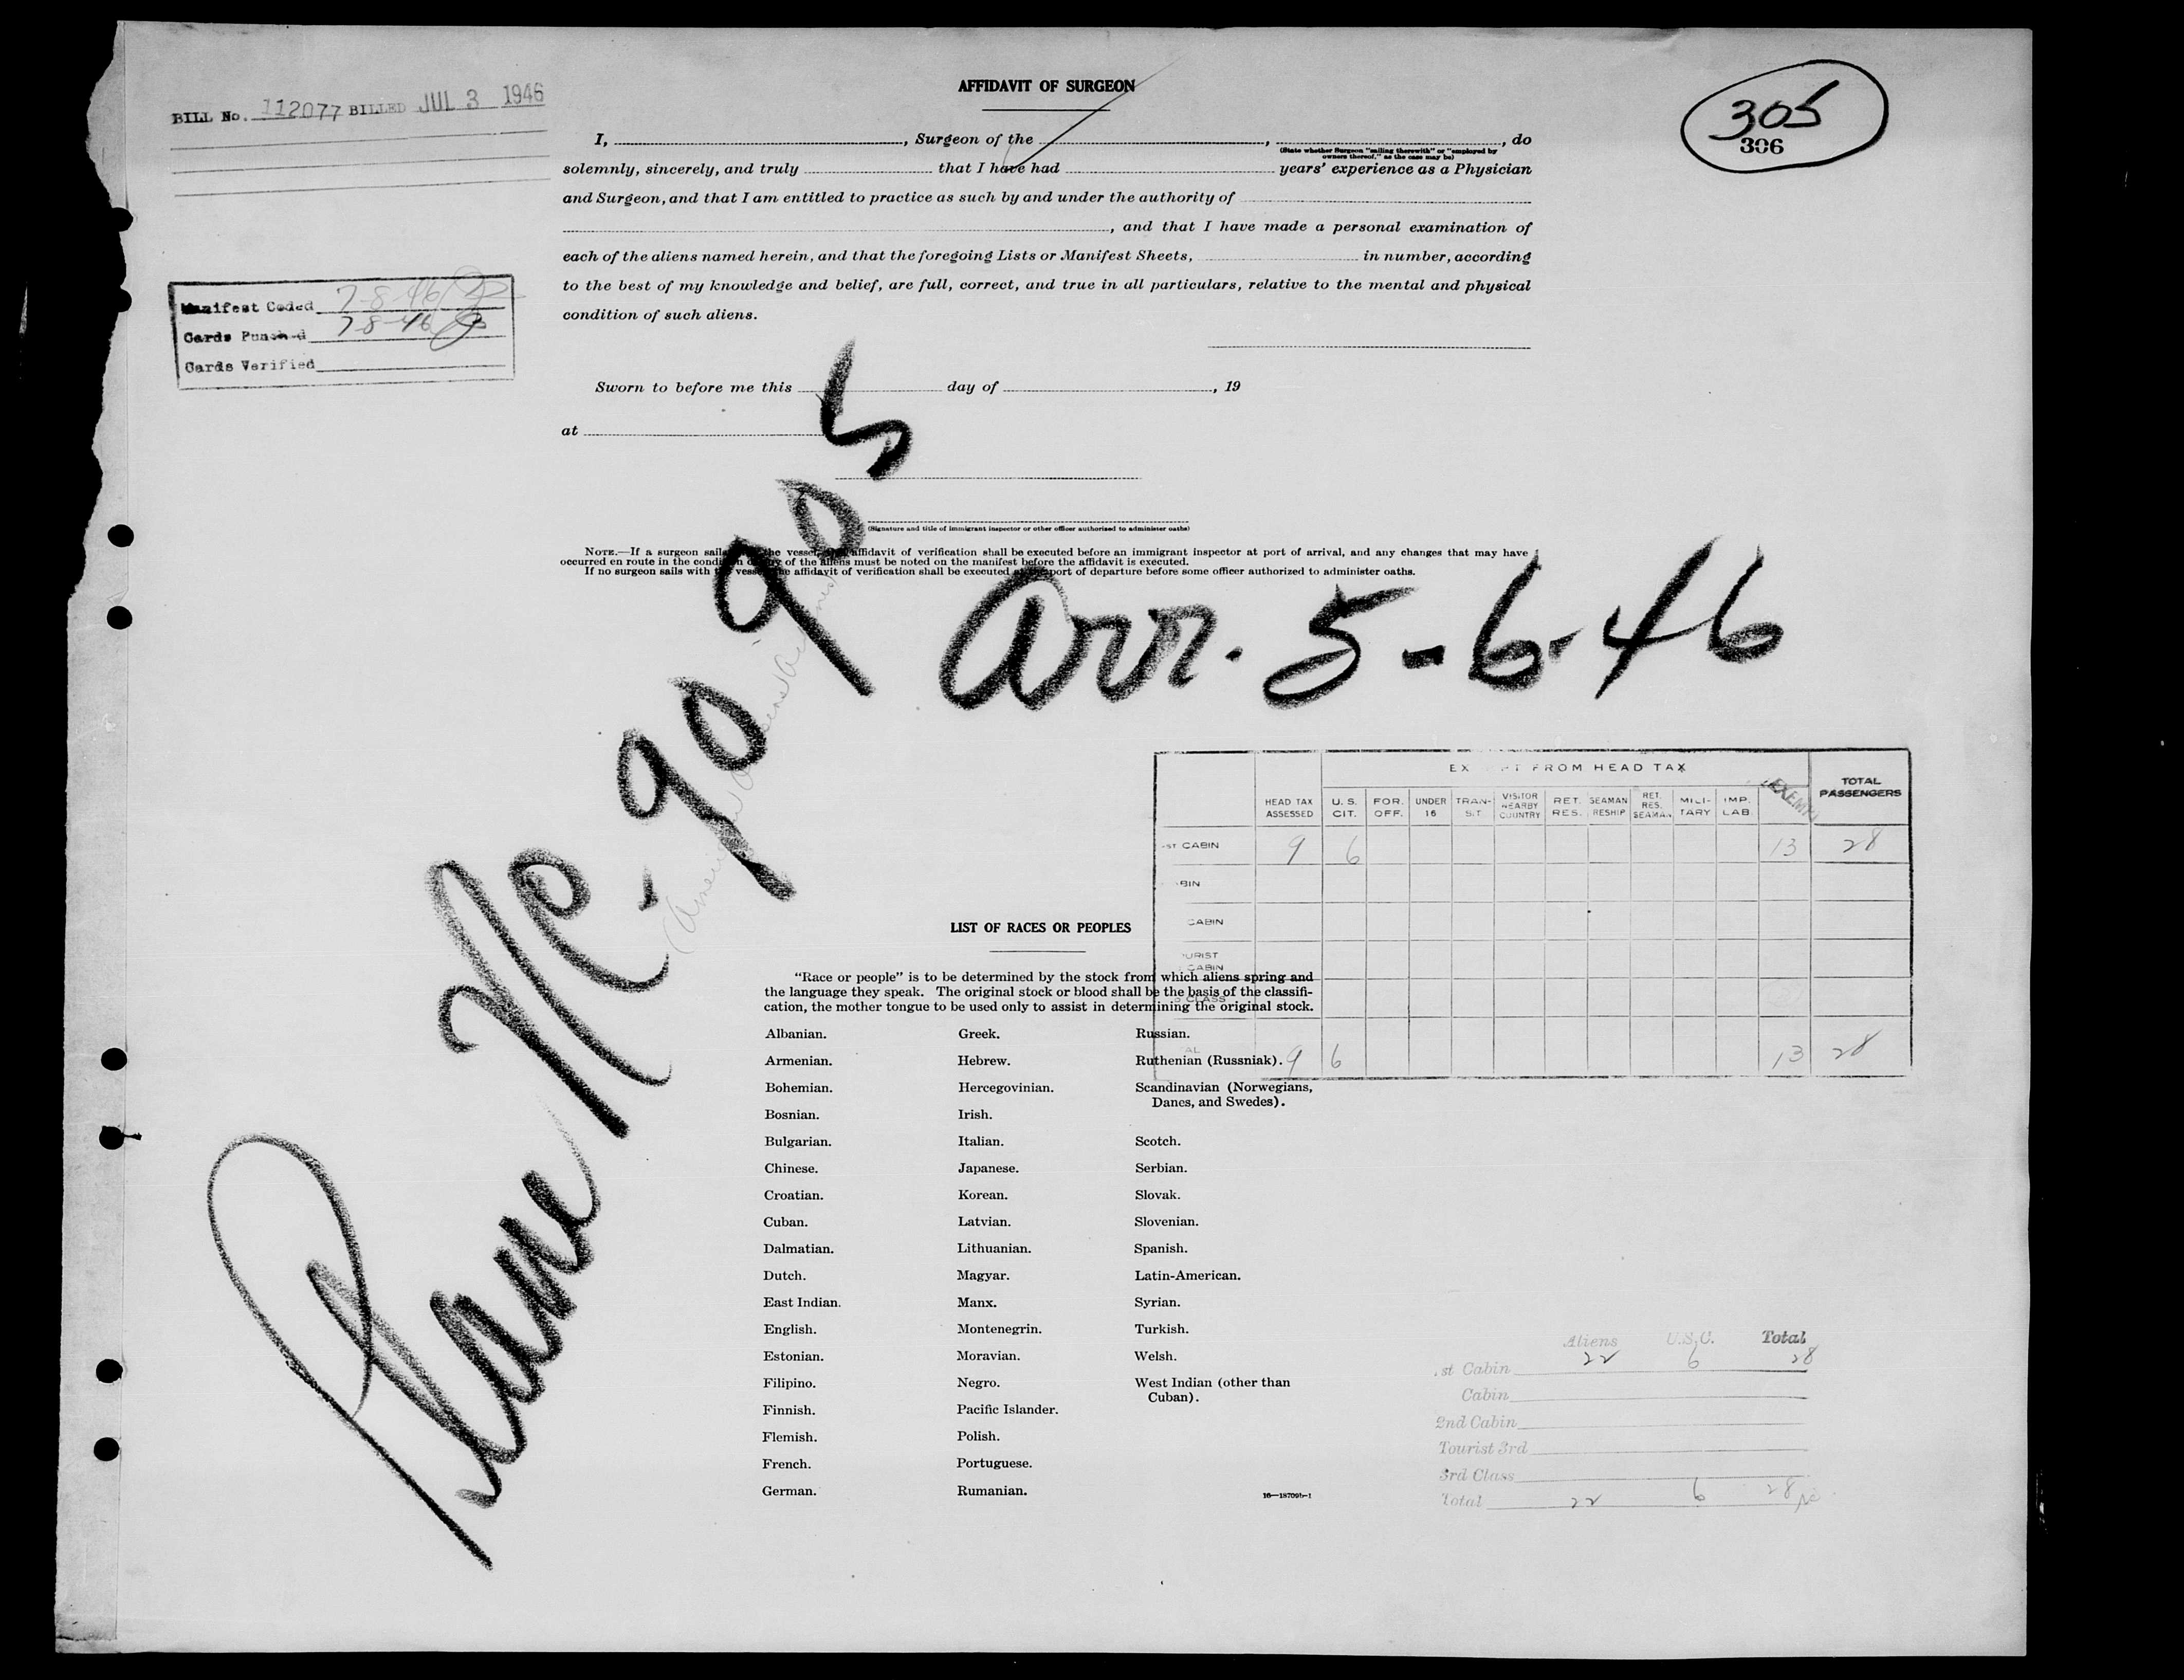 BILL No. 112077 BILLED JUL 3 1946
305
306
Manifest Coded 7-8-46
Cards Punched 7-8-46
Cards Verified
AFFIDAVIT OF SURGEON
I, , Surgeon of the , , do
(State whether Surgeon "sailing therewith" or "employed by
owners thereof," as the case may be)
solemnly, sincerely, and truly that I have had years' experience as a Physician
and Surgeon, and that I am entitled to practice as such by and under the authority of
, and that I have made a personal examination of
each of the aliens named herein, and that the foregoing Lists or Manifest Sheets, in number, according
to the best of my knowledge and belief, are full, correct, and true in all particulars, relative to the mental and physical
condition of such aliens.
Sworn to before me this day of , 19
at
(Signature and title of immigrant inspector or other officer authorized to administer oaths)
NOTE.—If a surgeon sails the vessel, affidavit of verification shall be executed before an immigrant inspector at port of arrival, and any changes that may have
occurred en route in the condition of any of the aliens must be noted on the manifest before the affidavit is executed.
If no surgeon sails with the vessel the affidavit of verification shall be executed at the port of departure before some officer authorized to administer oaths.
Plane NC-90905
Arr. 5-6-46
EXEMPT FROM HEAD TAX
HEAD TAX ASSESSED U.S. CIT. FOR. OFF. UNDER 16 TRAN-SIT VISITOR NEARBY COUNTRY RET. RES. SEAMAN RESHIP RET. RES. SEAMAN MILI-TARY IMP. LAB. EXEMPT TOTAL PASSENGERS
1ST CABIN 9 6 13 28
CABIN
CABIN
TOURIST
CABIN
CLASS
TOTAL 9 6 13 28
LIST OF RACES OR PEOPLES
"Race or people" is to be determined by the stock from which aliens spring and
the language they speak. The original stock or blood shall be the basis of the classifi-
cation, the mother tongue to be used only to assist in determining the original stock.
Albanian. Greek. Russian.
Armenian. Hebrew. Ruthenian (Russniak).
Bohemian. Hercegovinian. Scandinavian (Norwegians,
Danes, and Swedes).
Bosnian. Irish.
Bulgarian. Italian. Scotch.
Chinese. Japanese. Serbian.
Croatian. Korean. Slovak.
Cuban. Latvian. Slovenian.
Dalmatian. Lithuanian. Spanish.
Dutch. Magyar. Latin-American.
East Indian. Manx. Syrian.
English. Montenegrin. Turkish.
Estonian. Moravian. Welsh.
Filipino. Negro. West Indian (other than
Cuban).
Finnish. Pacific Islander.
Flemish. Polish.
French. Portuguese.
German. Rumanian.
16—18709b-1
Aliens U.S.C. Total
1st Cabin 22 6 28
Cabin
2nd Cabin
Tourist 3rd
3rd Class
Total 22 6 28